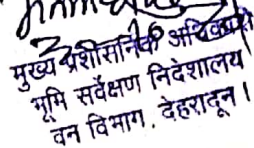 मुख्य प्रशासनिक अधिकारी
भूमि सर्वेक्षण निदेशालय
वन विभाग, देहरादून।